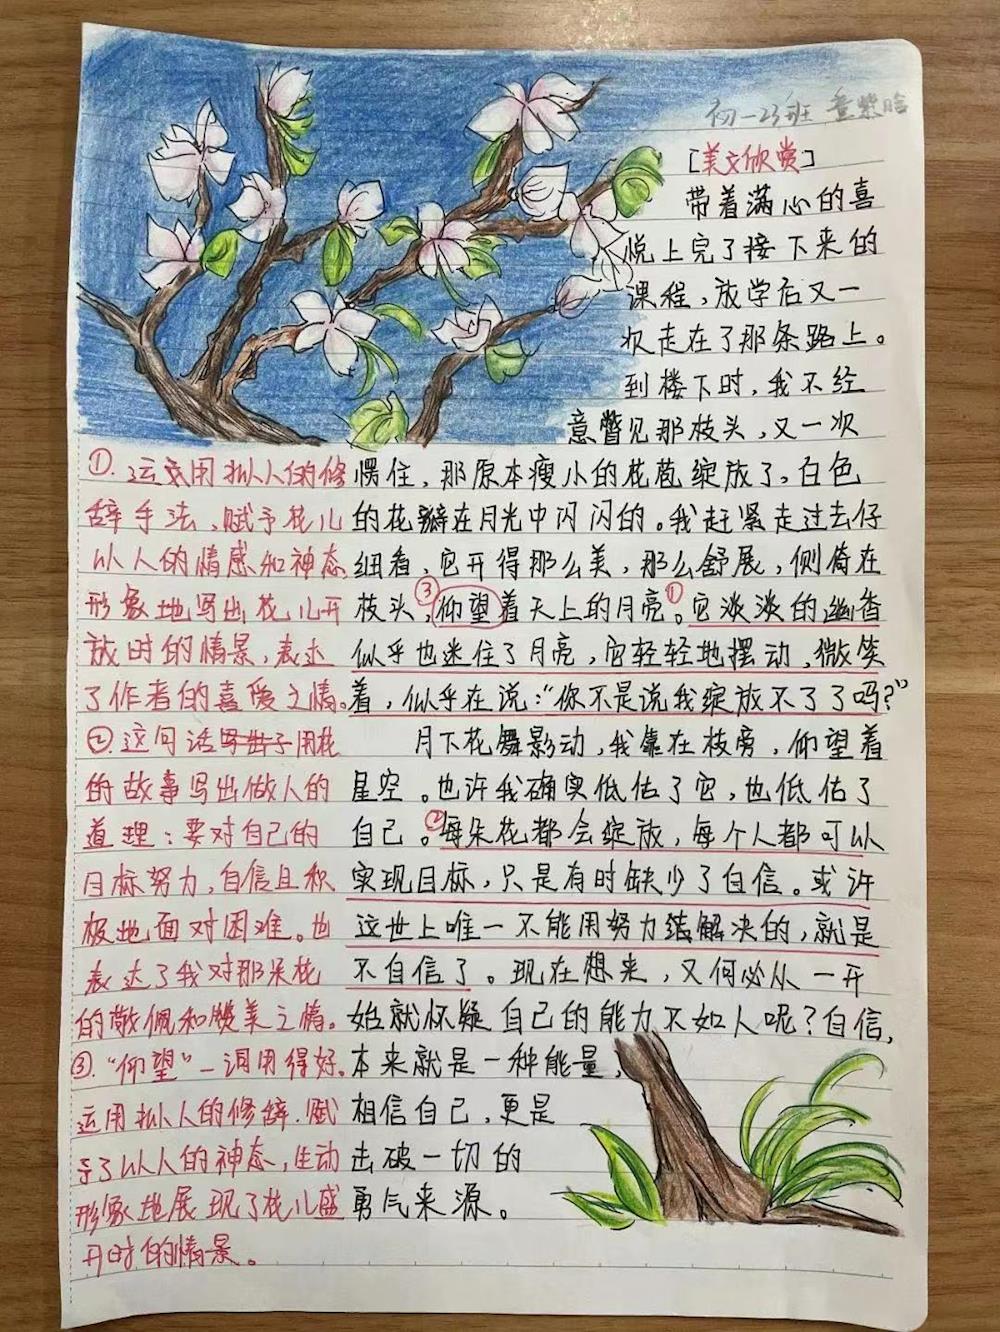 初一23班 童紫晗
[美文欣赏]
带着满心的喜
悦上完了接下来的
课程，放学后又一
次走在了那条路上。
到楼下时，我不经
意瞥见那枝头，又一次
愣住，那原本瘦小的花苞绽放了。白色
的花瓣在月光中闪闪的。我赶紧走过去仔
细看，它开得那么美，那么舒展，侧倚在
枝头，③仰望着天上的月亮。①它淡淡的幽香
似乎也迷住了月亮，它轻轻地摆动，微笑
着，似乎在说：“你不是说我绽放不了了吗？”
月下花舞影动，我靠在枝旁，仰望着
星空。也许我确实低估了它，也低估了
自己。②每朵花都会绽放，每个人都可以
实现目标，只是有时缺少了自信。或许
这世上唯一不能用努力解决的，就是
不自信了。现在想来，又何必从一开
始就怀疑自己的能力不如人呢？自信，
本来就是一种能量，
相信自己，更是
击破一切的
勇气来源。
①.运用拟人的修
辞手法，赋予花儿
以人的情感和神态
形象地写出花儿开
放时的情景，表达
了作者的喜爱之情。
②这句话用花
的故事写出做人的
道理：要对自己的
目标努力，自信且积
极地面对困难。也
表达了我对那朵花
的敬佩和赞美之情。
③.“仰望”一词用得好。
运用拟人的修辞.赋
予了以人的神态，生动
形象地展现了花儿盛
开时的情景。